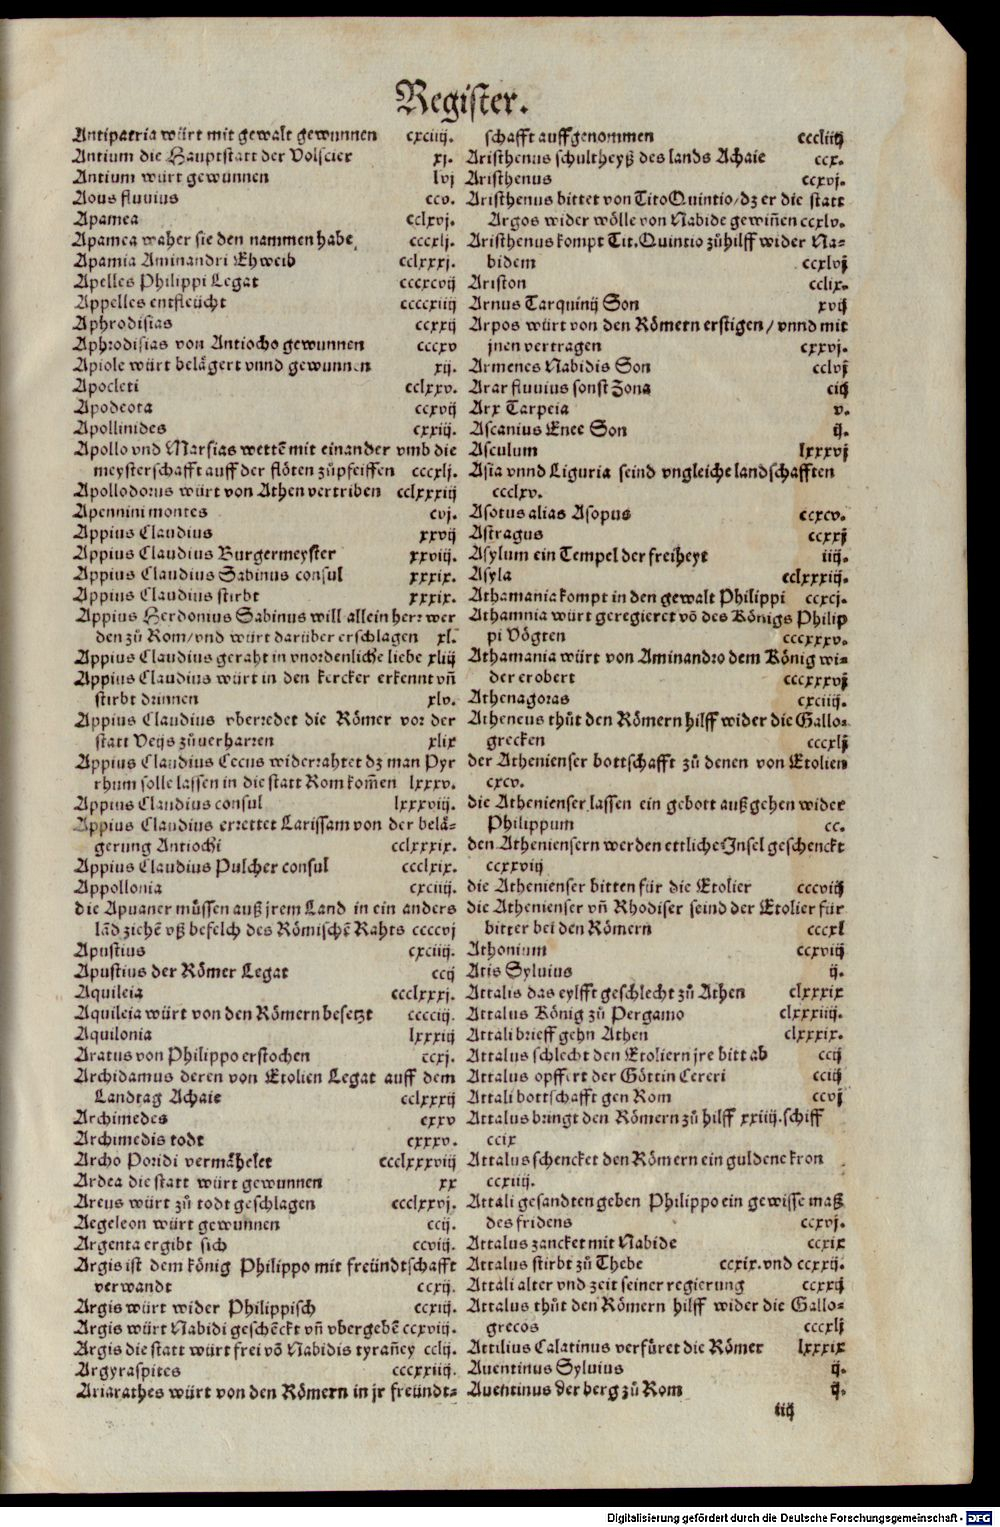 Register.
Antipatria würt mit gewalt gewunnen cxciiij.
Antium die Hauptstatt der Volscier xj.
Antium würt gewunnen lvj
Aous fluuius ccv.
Apamea cclxvj.
Apamea waher sie den nammen habe cccxlj.
Apamia Aminandri Ehweib cclxxxj.
Apelles Philippi Legat cccxcvij
Appelles entfleücht ccccxiiij
Aphrodisias ccxxij
Aphrodisias von Antiocho gewunnen cccxv
Apiole würt belägert vnnd gewunnen xij.
Apocleti cclxxv.
Apodeota ccxvij
Apollinides cxxiij.
Apollo vnd Marsias wettē mit einander vmb die
meysterschafft auff der flöten zůpfeiffen cccxlj.
Apollodorus würt von Athen vertriben cclxxxiij
Apennini montes cvj.
Appius Claudius xxvij
Appius Claudius Burgermeyster xxviij.
Appius Claudius Sabinus consul xxxix.
Appius Claudius stirbt xxxix.
Appius Herdonius Sabinus will allein herr wer
den zů Rom/vnd würt darüber erschlagen xl.
Appius Claudius geraht in vnordenliche liebe xliij
Appius Claudius würt in den kercker erkennt vñ
stirbt drinnen xlv.
Appius Claudius vberredet die Römer vor der
statt Veijs zůuerharren xlix
Appius Claudius Cecus widerrahtet dz man Pyr
rhum solle lassen in die statt Rom kom̄en lxxxv.
Appius Claudius consul lxxxviij.
Appius Claudius errettet Larissam von der belä-
gerung Antiochi cclxxxix.
Appius Claudius Pulcher consul ccclxix.
Appollonia cxciiij.
die Apuaner müssen auß jrem Land in ein anders
lād ziehē vß befelch des Römischē Rahts ccccvj
Apustius cxciiij.
Apustius der Römer Legat ccij
Aquileia ccclxxxj.
Aquileia würt von den Römern besetzt cccciij.
Aquilonia lxxxiij
Aratus von Philippo erstochen ccxj.
Archidamus deren von Etolien Legat auff dem
Landtag Achaie cclxxxij
Archimedes cxxv
Archimedis todt cxxxv.
Archo Poridi vermähelet ccclxxxviij
Ardea die statt würt gewunnen xx
Areus würt zů todt geschlagen ccclxxvj.
Aegeleon würt gewunnen ccij.
Argenta ergibt sich ccviij.
Argis ist dem könig Philippo mit freündtschafft
verwandt ccxij.
Argis würt wider Philippisch ccxiij.
Argis würt Nabidi geschēckt vñ vbergebē ccxviij.
Argis die statt würt frei vō Nabidis tyrañey cclij.
Argyraspites cccxxiiij.
Ariarathes würt von den Römern in jr freündt-
schafft auffgenommen cccliiij
Aristhenus schultheyß des lands Achaie ccx.
Aristhenus ccxvj.
Aristhenus bittet von Tito Quintio/dz er die statt
Argos wider wölle von Nabide gewiñen ccxlv.
Aristhenus kompt Tit. Quintio zůhilff wider Na-
bidem ccxlvj
Ariston cclix.
Arnus Tarquinij Son xvij
Arpos würt von den Römern erstigen/vnnd mit
jnen vertragen cxxvj.
Armenes Nabidis Son cclvj
Arar fluuius sonst Zona ciij
Arx Tarpeia v.
Ascanius Enee Son ij.
Asculum lxxxvj
Asia vnnd Liguria seind vngleiche landschafften
ccclxv.
Asotus alias Asopus ccxcv.
Astragus ccxxj
Asylum ein Tempel der freiheyt iiij.
Asyla cclxxxiij.
Athamania kompt in den gewalt Philippi ccxcj.
Athamnia würt geregieret vō des Königs Philip
pi Vögten cccxxxv.
Athamania würt von Aminandro dem König wi-
der erobert cccxxxvj
Athenagoras cxciiij.
Atheneus thůt den Römern hilff wider die Gallo-
grecken cccxlj
der Athenienser bottschafft zů denen von Etolien
cxcv.
die Athenienser lassen ein gebott außgehen wider
Philippum cc.
den Atheniensern werden ettliche Insel geschenckt
ccxxviij
die Athenienser bitten für die Etolier cccviij
die Athenienser vñ Rhodiser seind der Etolier für
bitter bei den Römern cccxl
Athonium ccxviij
Atis Syluius ij.
Attalis das eylfft geschlecht zů Athen clxxxix
Attalus König zů Pergamo clxxxiiij.
Attali brieff gehn Athen clxxxix.
Attalus schlecht den Etoliern jre bitt ab ccij
Attalus opffert der Göttin Cereri cciij
Attali bottschafft gen Rom ccvj
Attalus bringt den Römern zů hilff xxiiij. schiff
ccix
Attalus schencket den Römern ein guldene kron
ccxiiij.
Attali gesandten geben Philippo ein gewisse maß
des fridens ccxvj.
Attalus zancket mit Nabide ccxix
Attalus stirbt zů Thebe ccxix. vnd ccxxij.
Attali alter vnd zeit seiner regierung ccxxij
Attalus thůt den Römern hilff wider die Gallo-
grecos cccxlj
Attilius Calatinus verfüret die Römer lxxxix
Auentinus Syluius ij.
Auentinus der berg zů Rom ij.
iij
Digitalisierung gefördert durch die Deutsche Forschungsgemeinschaft - DFG